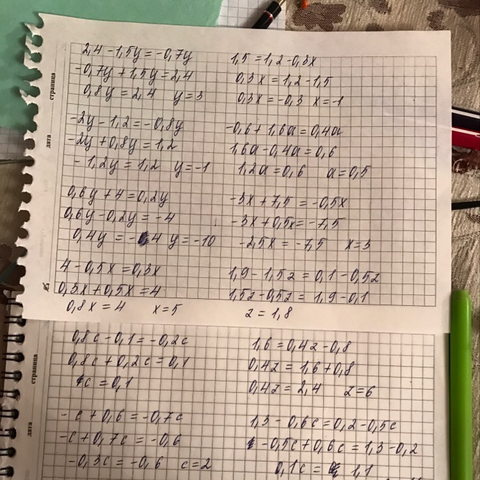 2,4 - 1,5y = -0,7y
-0,7y + 1,5y = 2,4
0,8y = 2,4 y = 3
1,5 = 1,2 - 0,3x
0,3x = 1,2 - 1,5
0,3x = -0,3 x = -1
-2y - 1,2 = -0,8y
-2y + 0,8y = 1,2
-1,2y = 1,2 y = -1
-0,6 + 1,6a = 0,4a
1,6a - 0,4a = 0,6
1,2a = 0,6 a = 0,5
0,6y + 4 = 0,2y
0,6y - 0,2y = -4
0,4y = -4 y = -10
-3x + 7,5 = -0,5x
-3x + 0,5x = -7,5
-2,5x = -7,5 x = 3
4 - 0,5x = 0,3x
0,3x + 0,5x = 4
0,8x = 4 x = 5
1,9 - 1,5z = 0,1 - 0,5z
1,5z - 0,5z = 1,9 - 0,1
z = 1,8
0,8c - 0,1 = -0,2c
0,8c + 0,2c = 0,1
c = 0,1
1,6 = 0,4z - 0,8
0,4z = 1,6 + 0,8
0,4z = 2,4 z = 6
-c + 0,6 = -0,7c
-c + 0,7c = -0,6
-0,3c = -0,6 c = 2
1,3 - 0,6c = 0,2 - 0,5c
-0,5c + 0,6c = 1,3 - 0,2
0,1c = 1,1
страница
дата
№
страница
дата